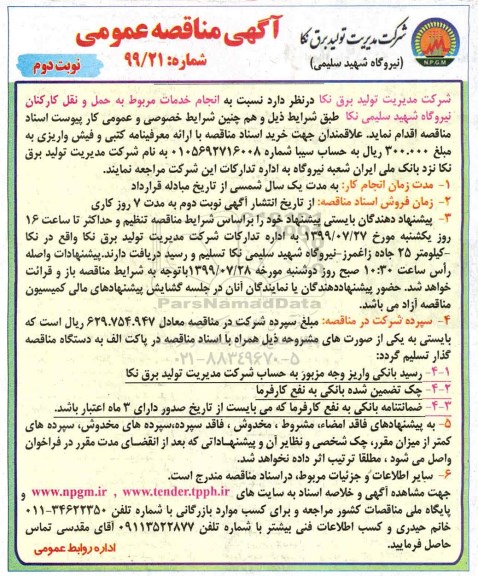 آگهی مناقصه عمومی
شماره: ۹۹/۲۱
نوبت دوم
شرکت مدیریت تولید برق نکا
(نیروگاه شهید سلیمی)
N.P.G.M
شرکت مدیریت تولید برق نکا درنظر دارد نسبت به انجام خدمات مربوط به حمل و نقل کارکنان
نیروگاه شهید سلیمی نکا طبق شرایط ذیل و هم چنین شرایط خصوصی و عمومی کار پیوست اسناد
مناقصه اقدام نماید. علاقمندان جهت خرید اسناد مناقصه با ارائه معرفینامه کتبی و فیش واریزی به
مبلغ ۳۰۰.۰۰۰ ریال به حساب سیبا شماره ۰۱۰۵۶۹۲۷۱۶۰۰۸ به نام شرکت مدیریت تولید برق
نکا نزد بانک ملی ایران شعبه نیروگاه به اداره تدارکات این شرکت مراجعه نمایند.
۱- مدت زمان انجام کار: به مدت یک سال شمسی از تاریخ مبادله قرارداد
۲- زمان فروش اسناد مناقصه: از تاریخ انتشار آگهی نوبت دوم به مدت ۷ روز کاری
۳- پیشنهاد دهندگان بایستی پیشنهاد خود را براساس شرایط مناقصه تنظیم و حداکثر تا ساعت ۱۶
روز یکشنبه مورخ ۱۳۹۹/۰۷/۲۷ به اداره تدارکات شرکت مدیریت تولید برق نکا واقع در نکا
-کیلومتر ۲۵ جاده زاغمرز-نیروگاه شهید سلیمی نکا تسلیم و رسید دریافت دارند.پیشنهادات واصله
رأس ساعت ۱۰:۳۰ صبح روز دوشنبه مورخه ۱۳۹۹/۰۷/۲۸ باتوجه به شرایط مناقصه باز و قرائت
خواهد شد. حضور پیشنهاددهندگان یا نمایندگان آنان در جلسه گشایش پیشنهادهای مالی کمیسیون
مناقصه آزاد می باشد.
ParsNamadData
۴- سپرده شرکت در مناقصه: مبلغ سپرده شرکت در مناقصه معادل ۶۲۹.۷۵۴.۹۴۷ ریال است که
بایستی به یکی از صورت های مشروحه ذیل همراه با اسناد مناقصه در پاکت الف به دستگاه مناقصه
گذار تسلیم گردد:
۰۲۱-۸۸۳۴۹۶۷۰-۵
۴-۱- رسید بانکی واریز وجه مزبور به حساب شرکت مدیریت تولید برق نکا
۴-۲- چک تضمین شده بانکی به نفع کارفرما
۴-۳- ضمانتنامه بانکی به نفع کارفرما که می بایست از تاریخ صدور دارای ۳ ماه اعتبار باشد.
۵- به پیشنهادهای فاقد امضاء، مشروط ، مخدوش ، فاقد سپرده،سپرده های مخدوش، سپرده های
کمتر از میزان مقرر، چک شخصی و نظایر آن و پیشنهاداتی که بعد از انقضای مدت مقرر در فراخوان
واصل می شود ، مطلقا ترتیب اثر داده نخواهد شد.
۶- سایر اطلاعات و جزئیات مربوط، دراسناد مناقصه مندرج است.
جهت مشاهده آگهی و خلاصه اسناد به سایت های www.tender.tpph.ir , www.npgm.ir و
پایگاه ملی مناقصات کشور مراجعه و برای کسب موارد بازرگانی با شماره تلفن ۳۴۶۲۲۳۵۰-۰۱۱
خانم حیدری و کسب اطلاعات فنی بیشتر با شماره تلفن ۰۹۱۱۳۵۲۲۸۷۷ آقای مقدسی تماس
حاصل فرمایید.
اداره روابط عمومی